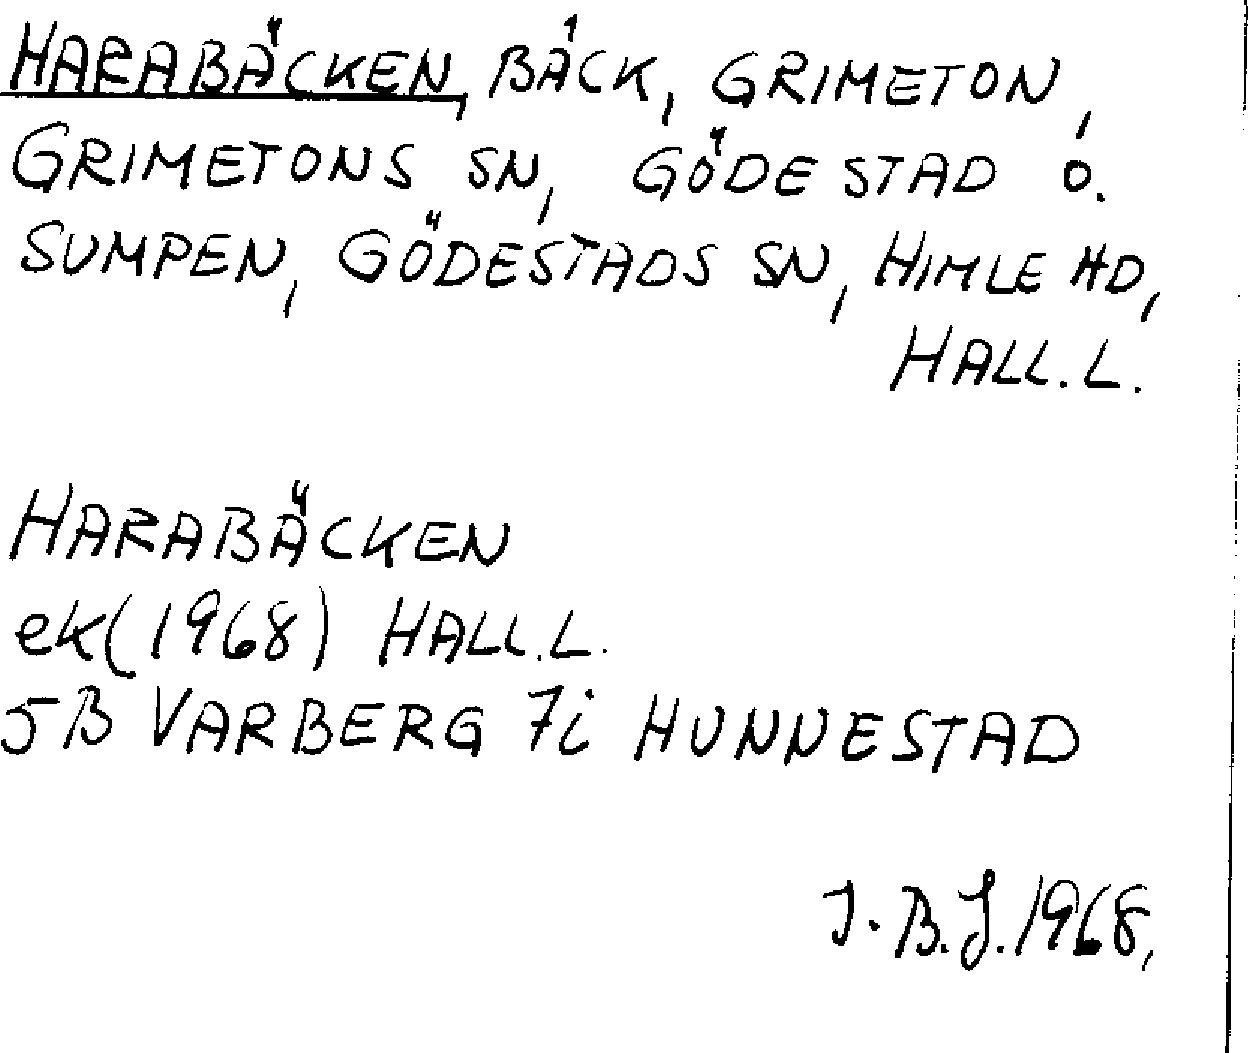 HARABÄCKEN, BÄCK, GRIMETON,
GRIMETONS SN, GÖDESTAD O.
SUMPEN, GÖDESTADS SN, HIMLE HD,
HALL.L.
HARABÄCKEN
ek(1968) HALL.L.
5B VARBERG 7i HUNNESTAD
J.B.J.1968.